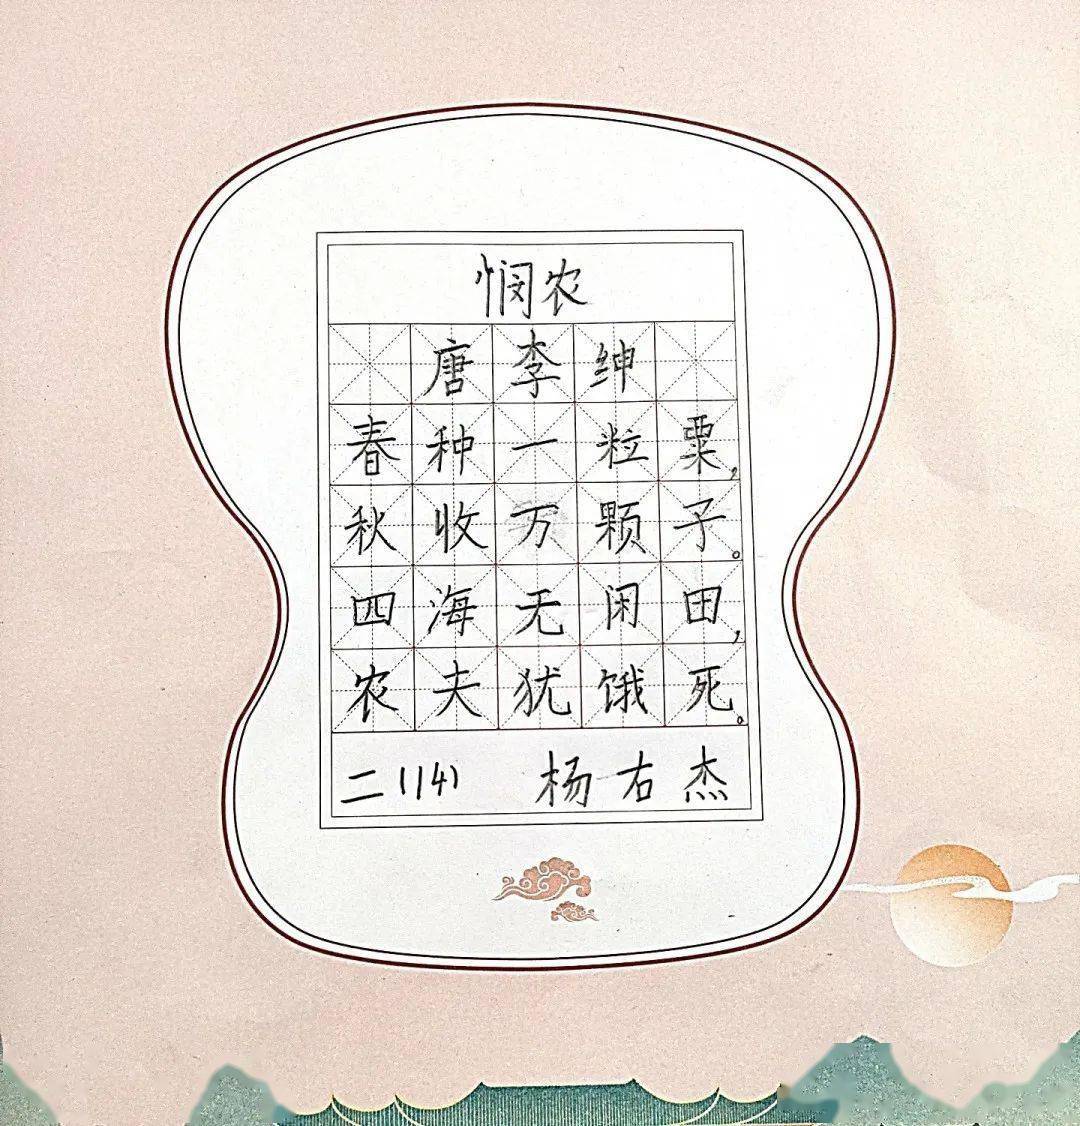 悯农
唐李绅
春种一粒粟,
秋收万颗子。
四海无闲田,
农夫犹饿死。
二(14) 杨右杰